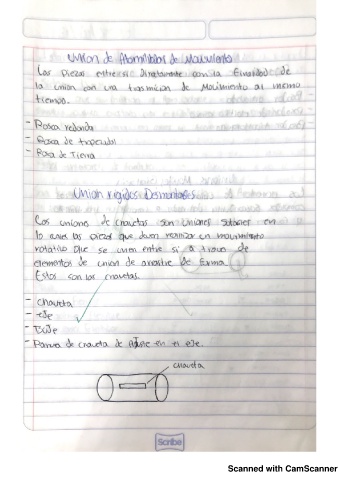 Union de Atornillados de Movimiento
Las piezas entre si directamente con la finalidad de
la union con una trasmicion de Movimiento al mismo
tiempo.
- Rosca redonda
- Rosca de
- Rosca de Tierra
Union rigidos Desmontables
Las uniones de chavetas son Uniones en
la cual las piezas que deven realizar un movimiento
rotativo que se unen entre si a traves de
elementos de union de arrastre de Forma
Estos son las chavetas.
- chaveta
- eje
- Buje
- Ranura de chaveta de Ajuste en el eje.
chaveta
Scribe
Scanned with CamScanner